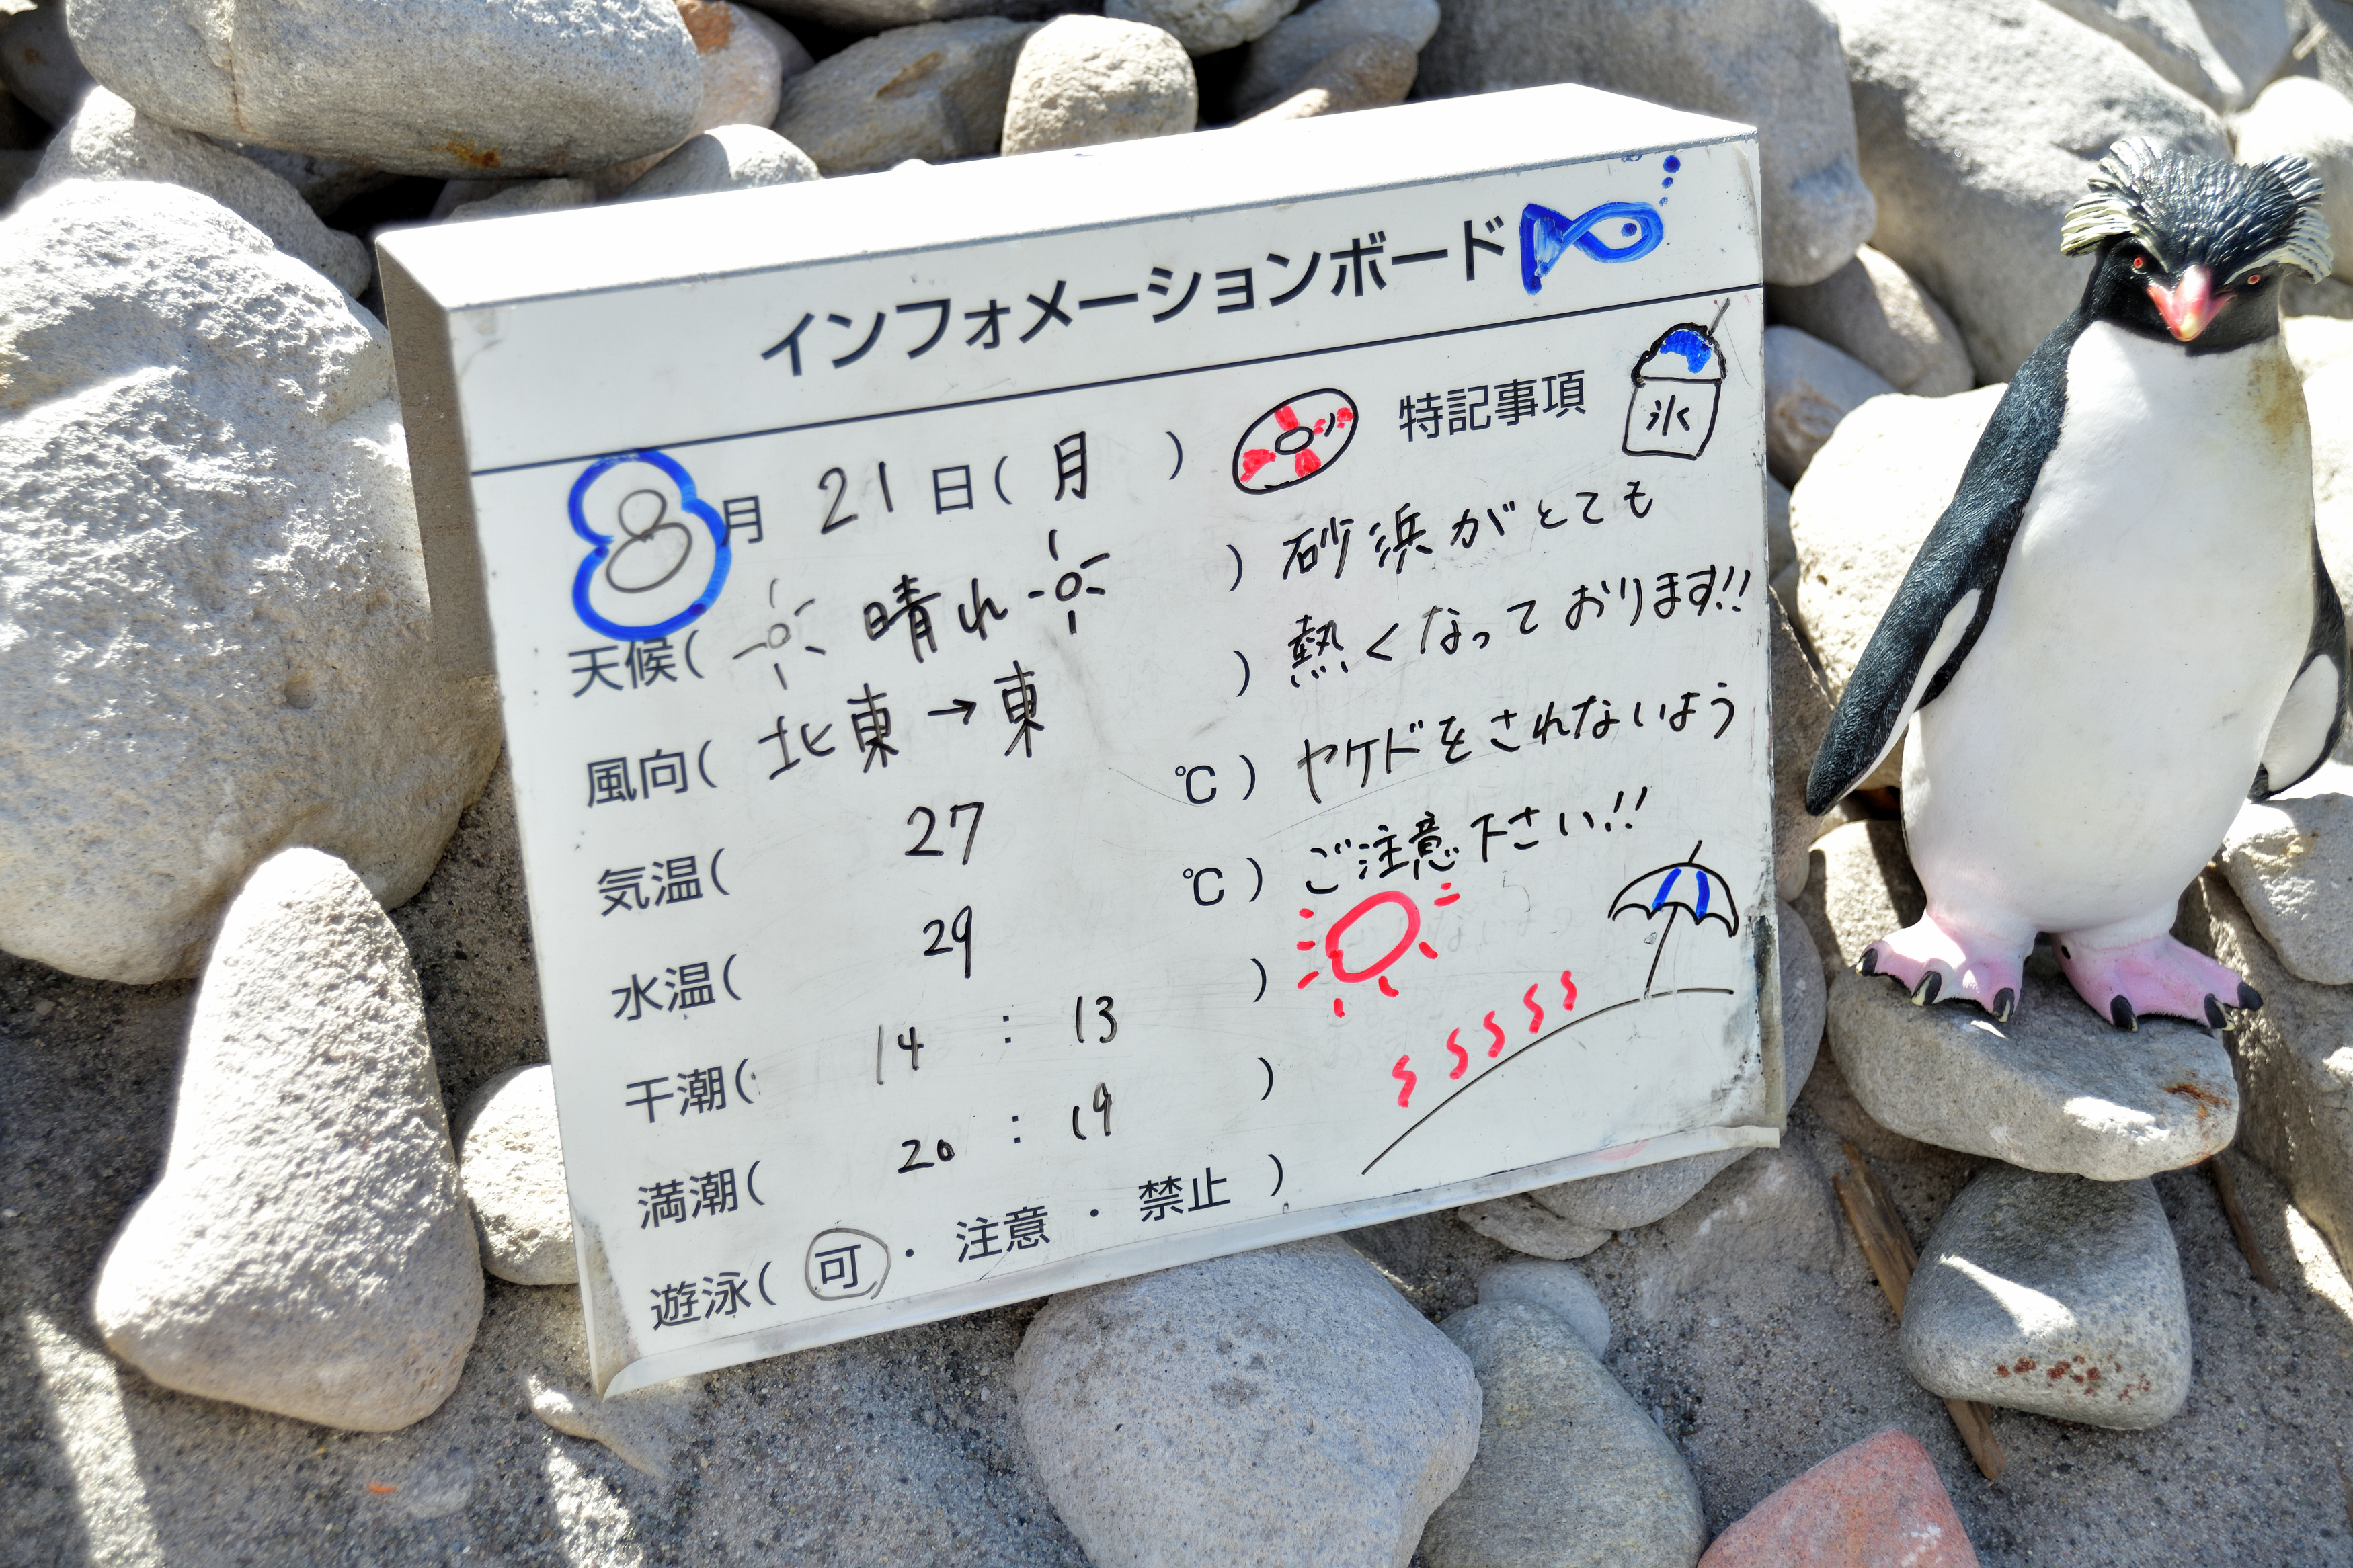 インフォメーションボード
8月 21日(月)
天候( 晴れ )
風向( 北東→東 )
気温( 27 ℃)
水温( 29 ℃)
干潮( 14 : 13 )
満潮( 20 : 19 )
遊泳( 可 ・ 注意 ・ 禁止 )
特記事項
氷
砂浜がとても
熱くなっております!!
ヤケドをされないよう
ご注意下さい!!